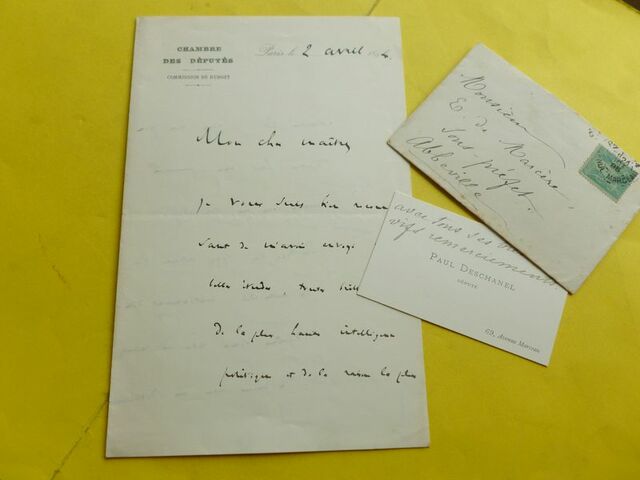 CHAMBRE
DES DÉPUTÉS
COMMISSION DU BUDGET
Paris, le 2 avril 
Mon cher maître,
Je vous suis bien
de m'avoir envoyé
belles études, toutes
de la plus haute intelligence
politique et de la raison la plus
Monsieur
E. de Marcère
Sous préfet
Abbeville
avec tous ses
vifs remerciements
PAUL DESCHANEL
DÉPUTÉ
69, Avenue Marceau